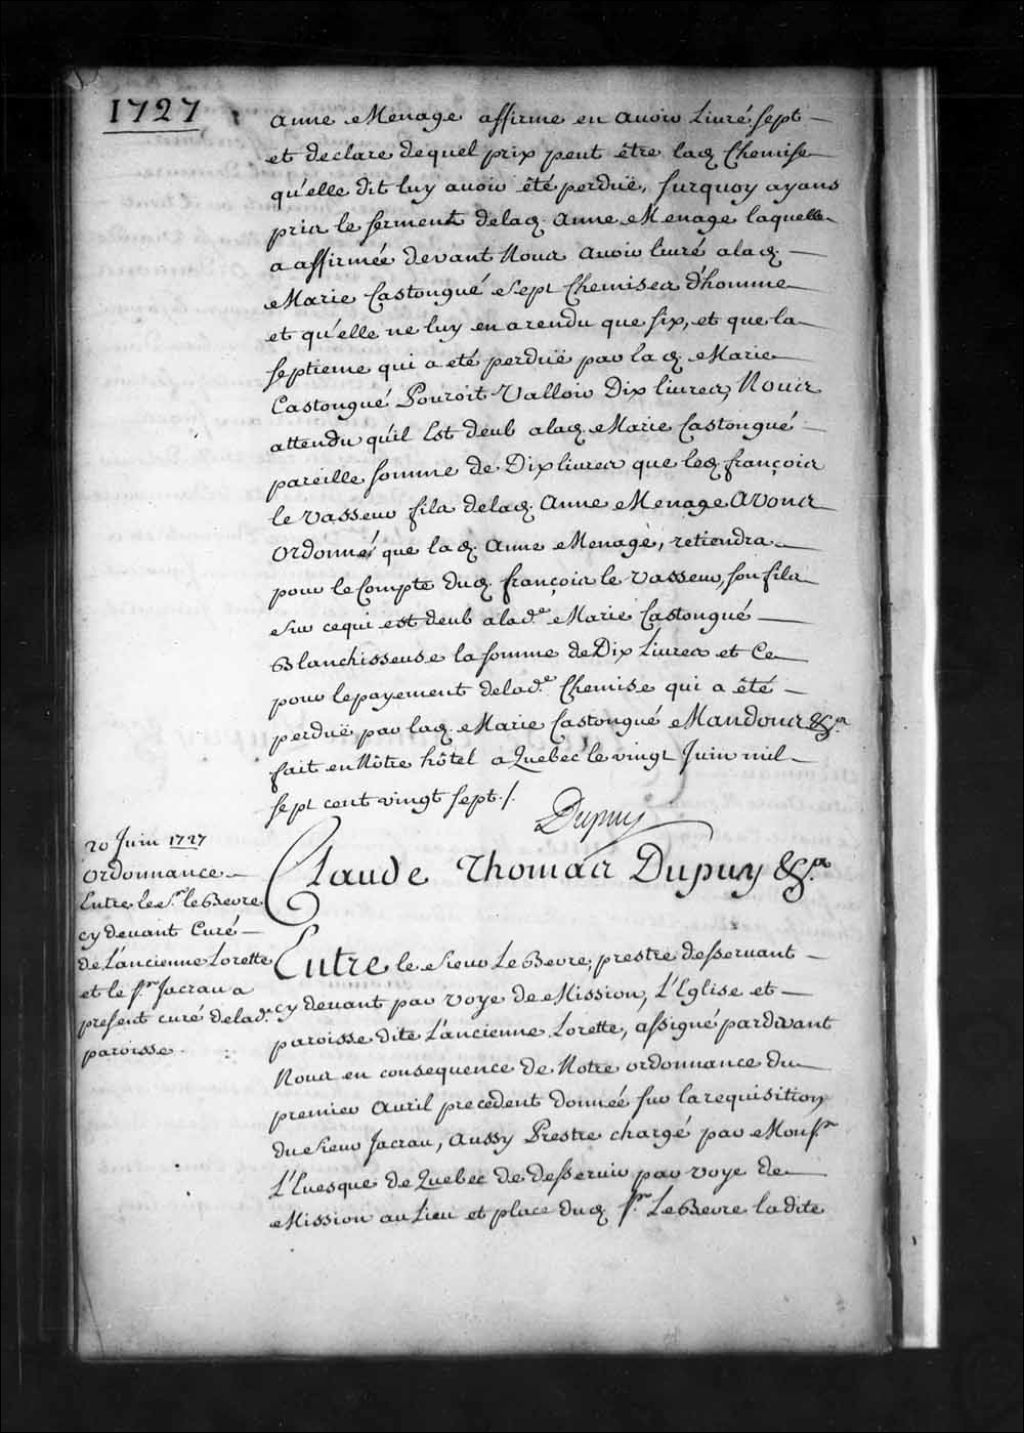 1727
anne Menage affirme en avoir Livré sept
et declare dequel prix peut être lad. Chemise
qu'elle dit luy avoir été perduë, surquoy ayans
pris le serment delad. Anne Menage laquelle
a affirmée devant Nous avoir livré alad.
Marie Castongué sept Chemises d'homme
et qu'elle ne luy en a rendu que six, et que la
septieme qui a eté perduë par lad. Marie
Castongué Pouroit Valloir Dix livres, Nous
attendu qu'il Est deub alad. Marie Castongué
pareille somme de Dix livres que led. françois
le vasseur fils delad. Anne Menage Avons
Ordonné que lad. Anne Menage, retiendra
pour le Compte dud. françois le vasseur, son fils
sur cequi est deub alad.e Marie Castongué
Blanchisseuse la somme de Dix Livres et Ce
pour lepayement delad.e Chemise qui a été
perduë par lad. Marie Castongué Mandons &c.a
fait en Nôtre hôtel a Quebec le vingt Juin mil
sept cent vingt sept./.
Dupuy
20 Juin 1727
Ordonnance
Entre le S.r le Bevre
cy devant Curé
de L'ancienne Lorette
et le S.r Jacrau a
present curé delad.e
paroisse.
Claude Thomas Dupuy &c.a
Entre le sieur Le Bevre, prestre desservant
cy devant par voye de Mission, L'Eglise et
paroisse dite L'ancienne Lorette, assigné pardevant
Nous en consequence de Notre ordonnance du
premier Avril precedent donnée sur la requisition
du sieur Jacrau, aussy Prestre chargé par Mons.r
L'Evesque de Quebec de desservir par voye de
Mission au Lieu et place dud. S.r Le Bevre ladite